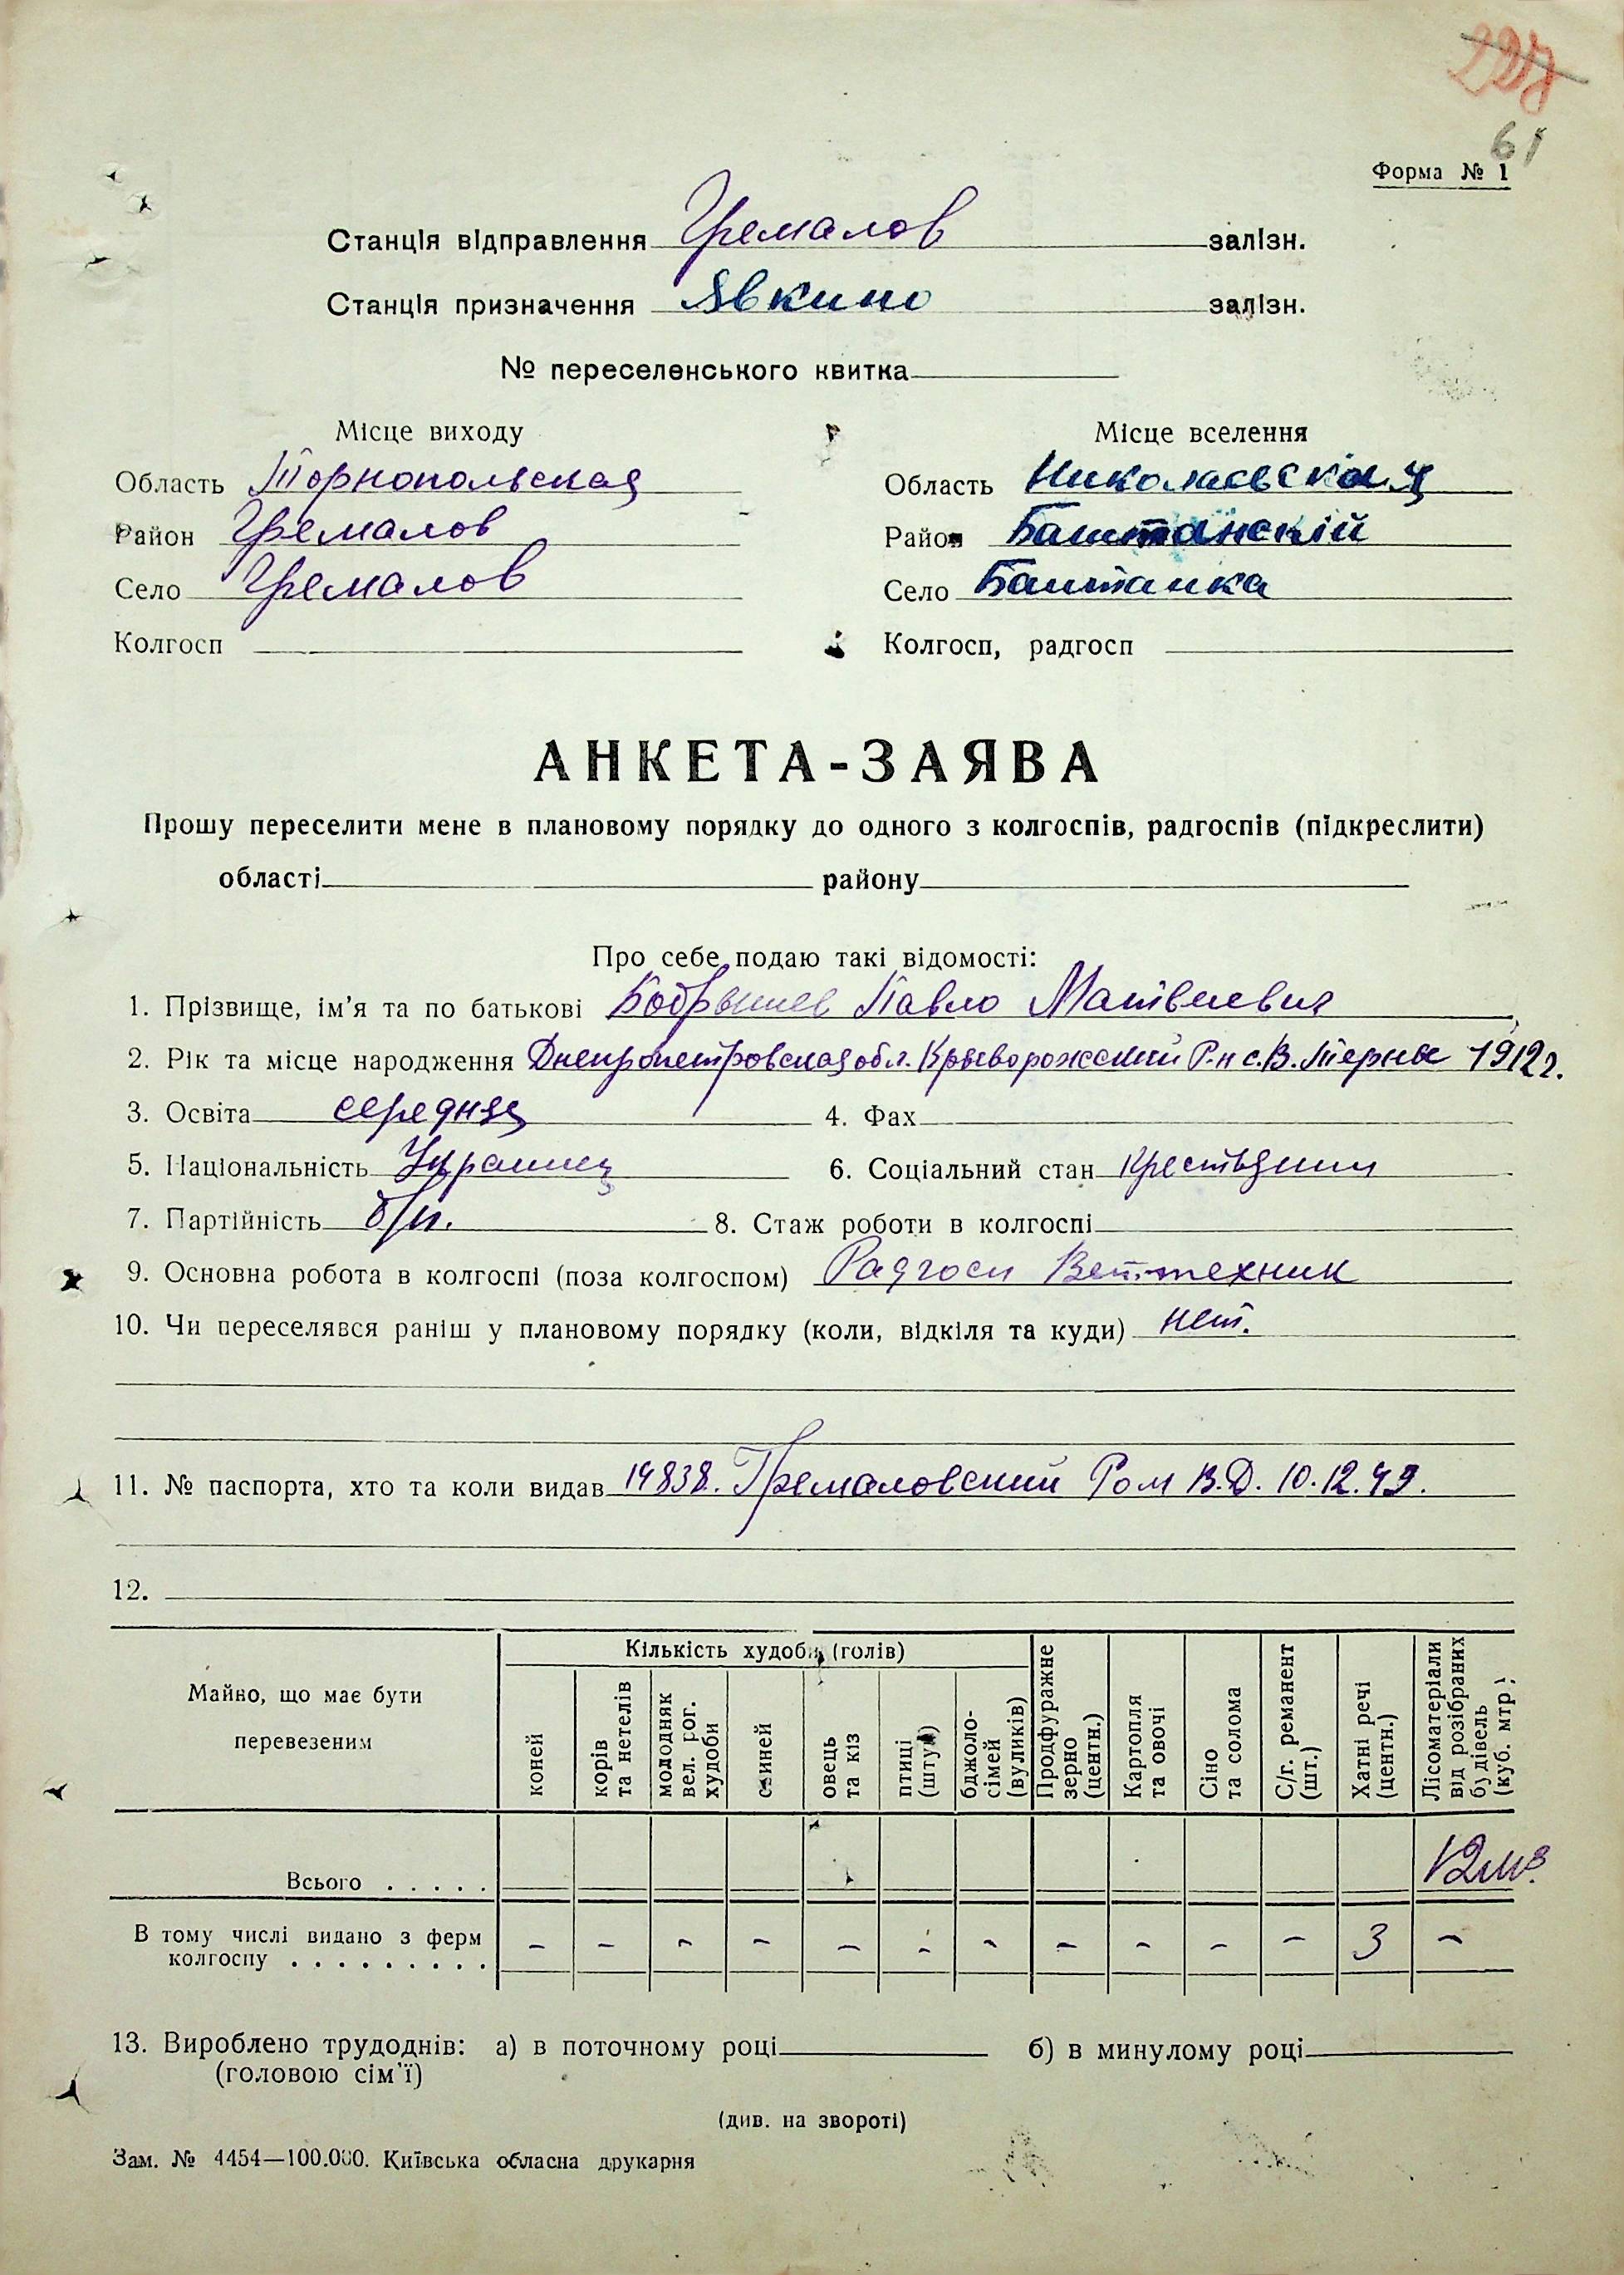 227
61
Форма № 1
Станція відправлення Гремалов залізн.
Станція призначення Явкино залізн.
№ переселенського квитка
Місце виходу Місце вселення
Область Торнопольская Область Николаевская
Район Гремалов Район Баштанскій
Село Гремалов Село Баштанка
Колгосп Колгосп, радгосп
АНКЕТА-ЗАЯВА
Прошу переселити мене в плановому порядку до одного з колгоспів, радгоспів (підкреслити)
області району
Про себе подаю такі відомості:
1. Прізвище, ім'я та по батькові Бобрышев Павло Матвиевич
2. Рік та місце народження Днепропетровская обл. Крыворожский Р-н с. В. Терны 1912 г.
3. Освіта середняя 4. Фах
5. Національність Украинец 6. Соціальний стан крестьянин
7. Партійність б/п. 8. Стаж роботи в колгоспі
9. Основна робота в колгоспі (поза колгоспом) Радгосп Веттехник
10. Чи переселявся раніш у плановому порядку (коли, відкіля та куди) нет.
11. № паспорта, хто та коли видав 14838. Гремаловский Ром В.Д. 10.12.49.
12.
Майно, що має бути перевезеним
Кількість худоби (голів)
коней
корів та нетелів
молодняк вел. рог. худоби
свиней
овець та кіз
птиці (штук)
бджоло-сімей (вуликів)
Продфуражне зерно (центн.)
Картопля та овочі
Сіно та солома
С/г. реманент (шт.)
Хатні речі (центн.)
Лісоматеріали від розібраних будівель (куб. мтр)
Всього . . . . . 12 м3.
В тому числі видано з ферм
колгоспу . . . . . . . . . - - - - - - - - - - - 3 -
13. Вироблено трудоднів: а) в поточному році б) в минулому році
(головою сім'ї)
(див. на звороті)
Зам. № 4454—100.000. Київська обласна друкарня